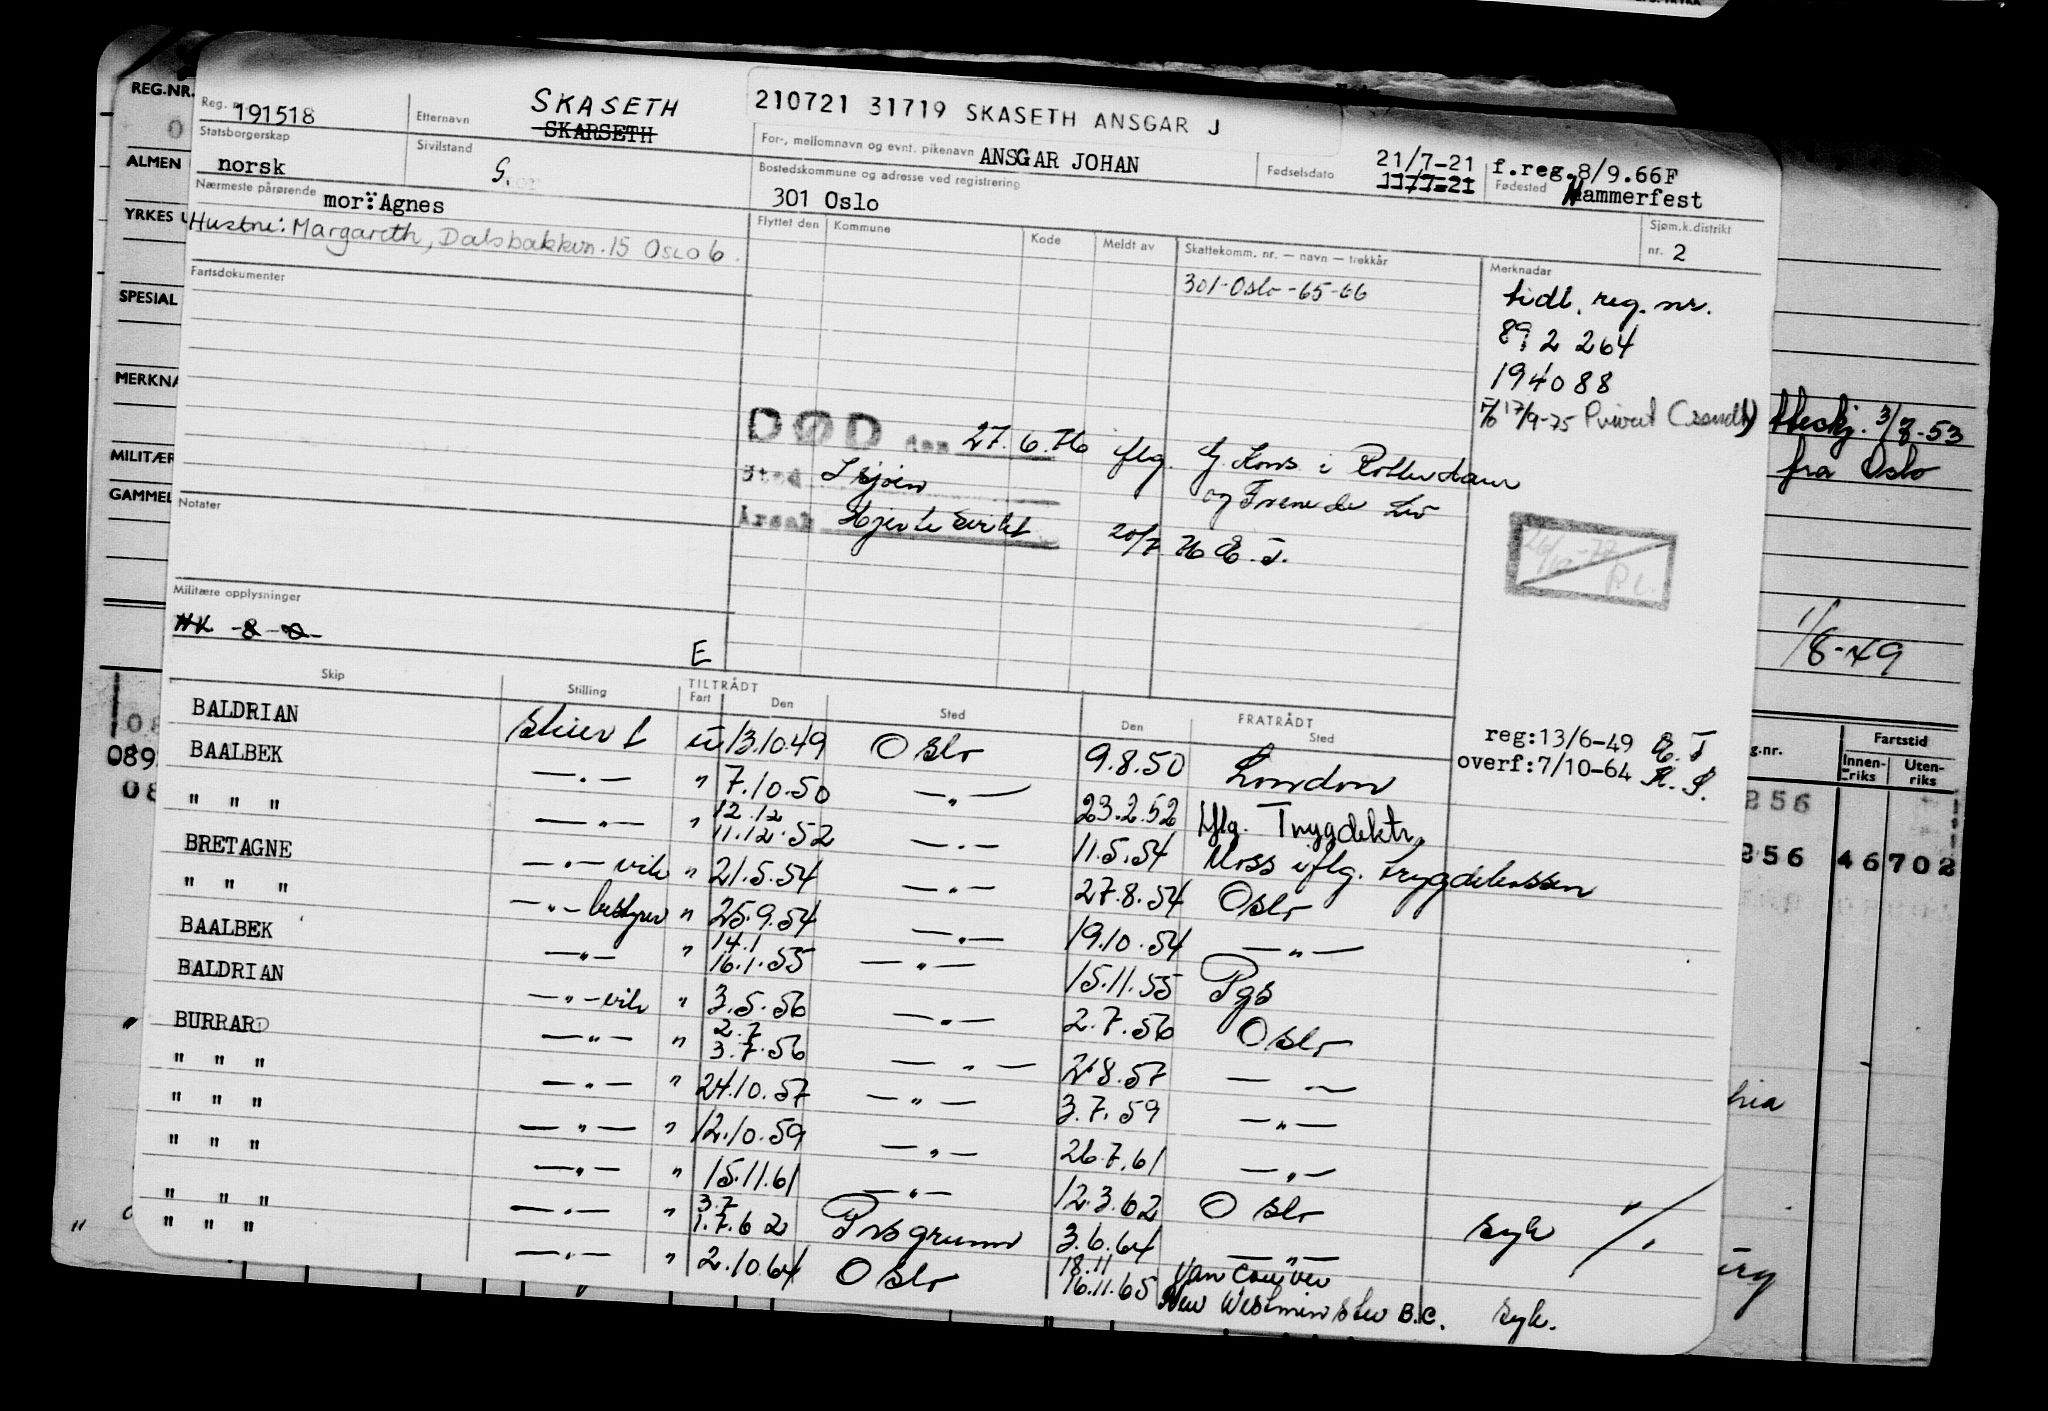 REG.NR.
ALMEN
YRKES
SPESIAL
MERKNA
MILITÆR
GAMMEL
089
Reg. n. 191518
Etternavn SKASETH
SKARSETH
210721 31719 SKASETH ANSGAR J
For-, mellomnavn og evnt. pikenavn ANSGAR JOHAN
Fødselsdato 21/7-21
11/7-21
f.reg. 8/9.66F
Fødested Hammerfest
Statsborgerskap norsk
Sivilstand G.
Bostedskommune og adresse ved registrering
301 Oslo
Nærmeste pårørende mor: Agnes
Hustru: Margareth, Dalsbakkvn. 15 Oslo 6.
Flyttet den Kommune Kode Meldt av Skattekomm. nr. — navn — trekkår
301-Oslo-65-66
Sjøm.k.distrikt
nr. 2
Merknadar
tidl. reg. nr.
892 264
194088
17/9-75 Privat
Fartsdokumenter
DØD den 27.6.76 iflg. G. Kons i Rotterdam
Sted I sjøen
Årsak Hjertesvikt 20/7 76 E.T.
Notater
Militære opplysninger
E
3/8-53
fra Oslo
1/8-49
Skip Stilling TILTRÅDT Fart Den Sted FRATRÅDT Den Sted
reg:13/6-49 E.T
overf:7/10-64
BALDRIAN u 13.10.49 Oslo 9.8.50 London
BAALBEK —„— „ 7.10.50 —„— 23.2.52 Iflg. Trygdektr.
" " " —„— „ 12.12 11.12.52 —„— 11.5.54 Moss iflg. trygdekassen
BRETAGNE —„— vik „ 21.5.54 —„— 27.8.54 Oslo
" " " —„— bestyrer „ 25.9.54 —„— 19.10.54 —„—
BAALBEK —„— „ 14.1 16.1.55 —„— 15.11.55 Pgs
BALDRIAN —„— vik „ 3.5.56 —„— 2.7.56 Oslo
BURRARD —„— „ 2.7 3.7.56 —„— 2.8.57 —„—
" " " —„— „ 24.10.57 —„— 3.7.59 —„—
" " " —„— „ 12.10.59 —„— 26.7.61 —„—
" " " —„— „ 15.11.61 —„— 12.3.62 Oslo syk
" " " —„— „ 3.7 1.7.62 Porsgrunn 3.6.64 —„—
" " " —„— „ 2.10.64 Oslo 18.11 16.11.65 Vancouver New Westminster B.C. syk.
g.nr. Fartstid
Innen-riks Uten-riks
256
256 46702